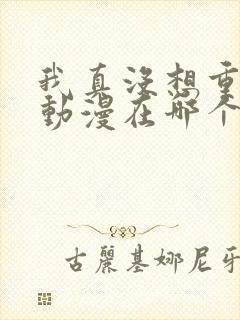 我真没想重
動漫在哪个
古麗基娜尼牙